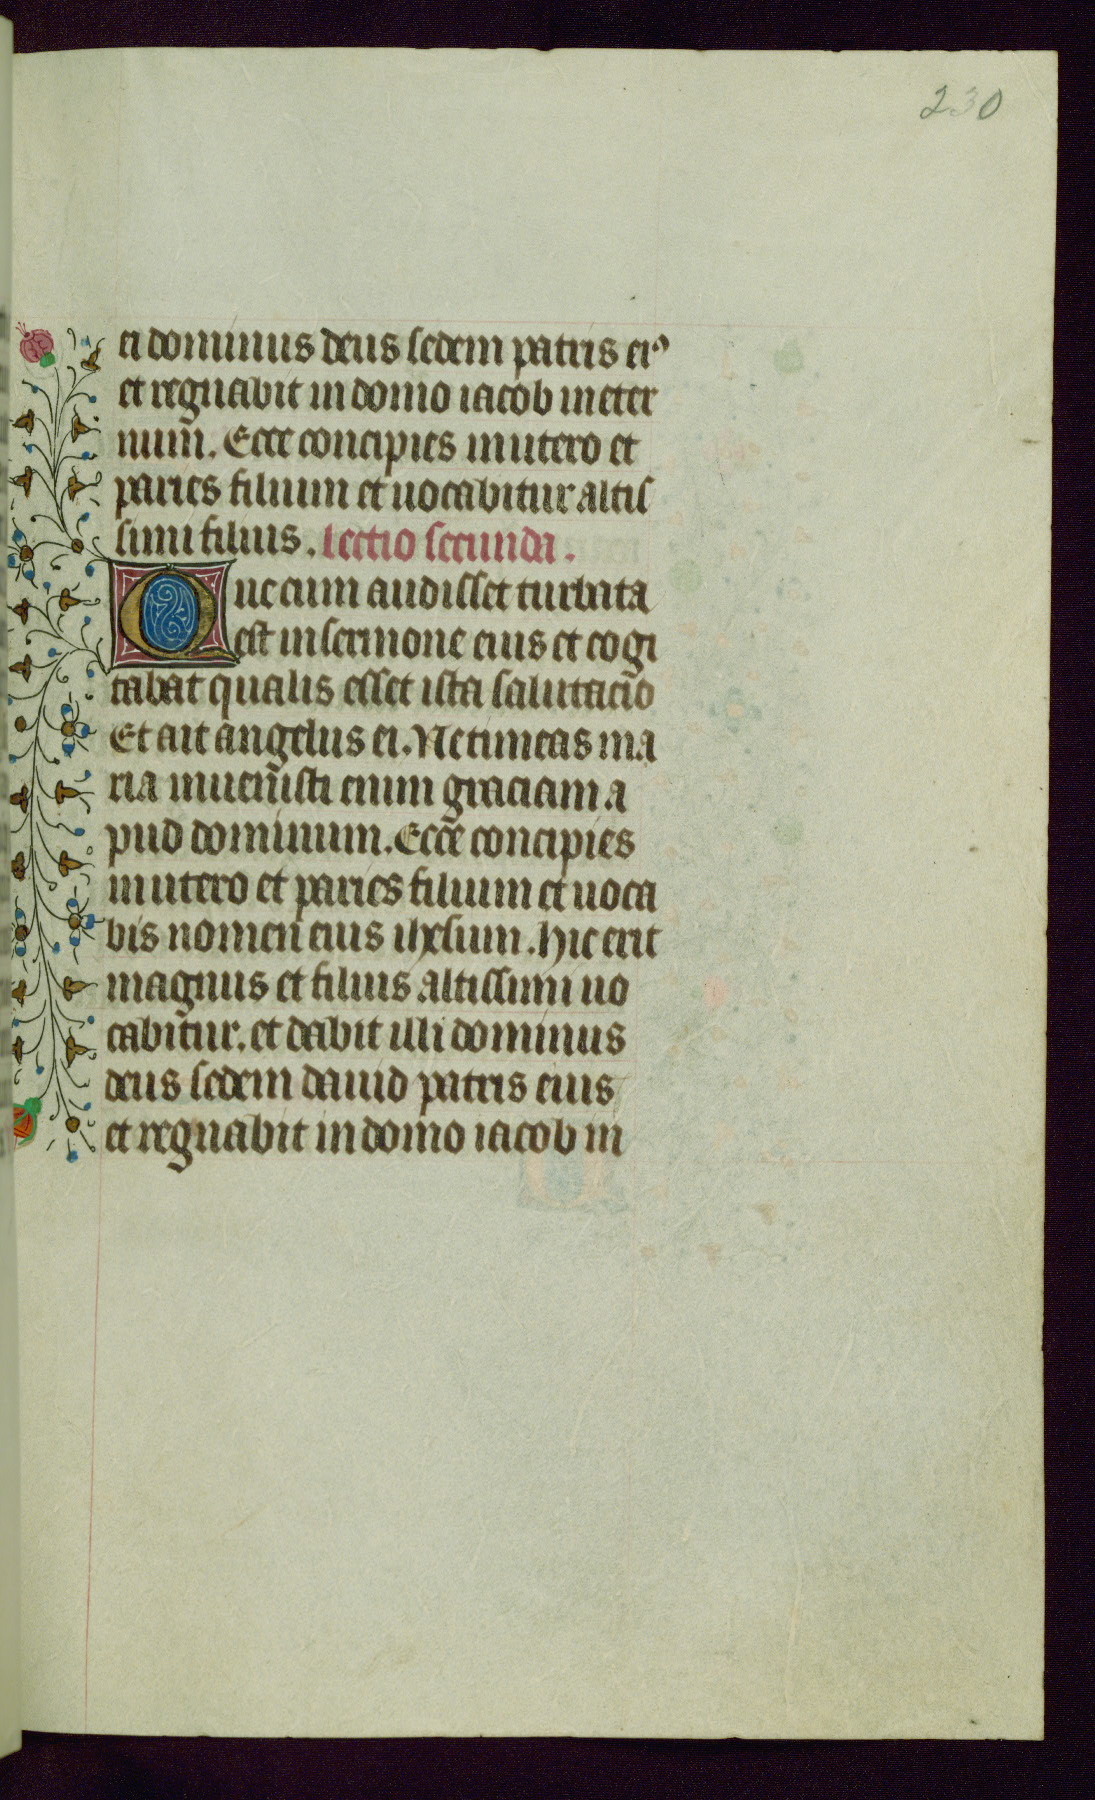 230
ci dominus deus sedem patris ei⁹
et regnabit in domo iacob in eter
num. Ecce concipies in utero et
paries filium et uocabitur altis
simi filius. Lectio secunda.
Que cum audisset turbata
est in sermone eius et cogi
tabat qualis esset ista salutacio
Et ait angelus ei. Ne timeas ma
ria inuenisti enim graciam a
pud dominum. Ecce concipies
in utero et paries filium et uoca
bis nomen eius ihesum. Hic erit
magnus et filius altissimi uo
cabitur. et dabit illi dominus
deus sedem dauid patris eius
et regnabit in domo iacob in